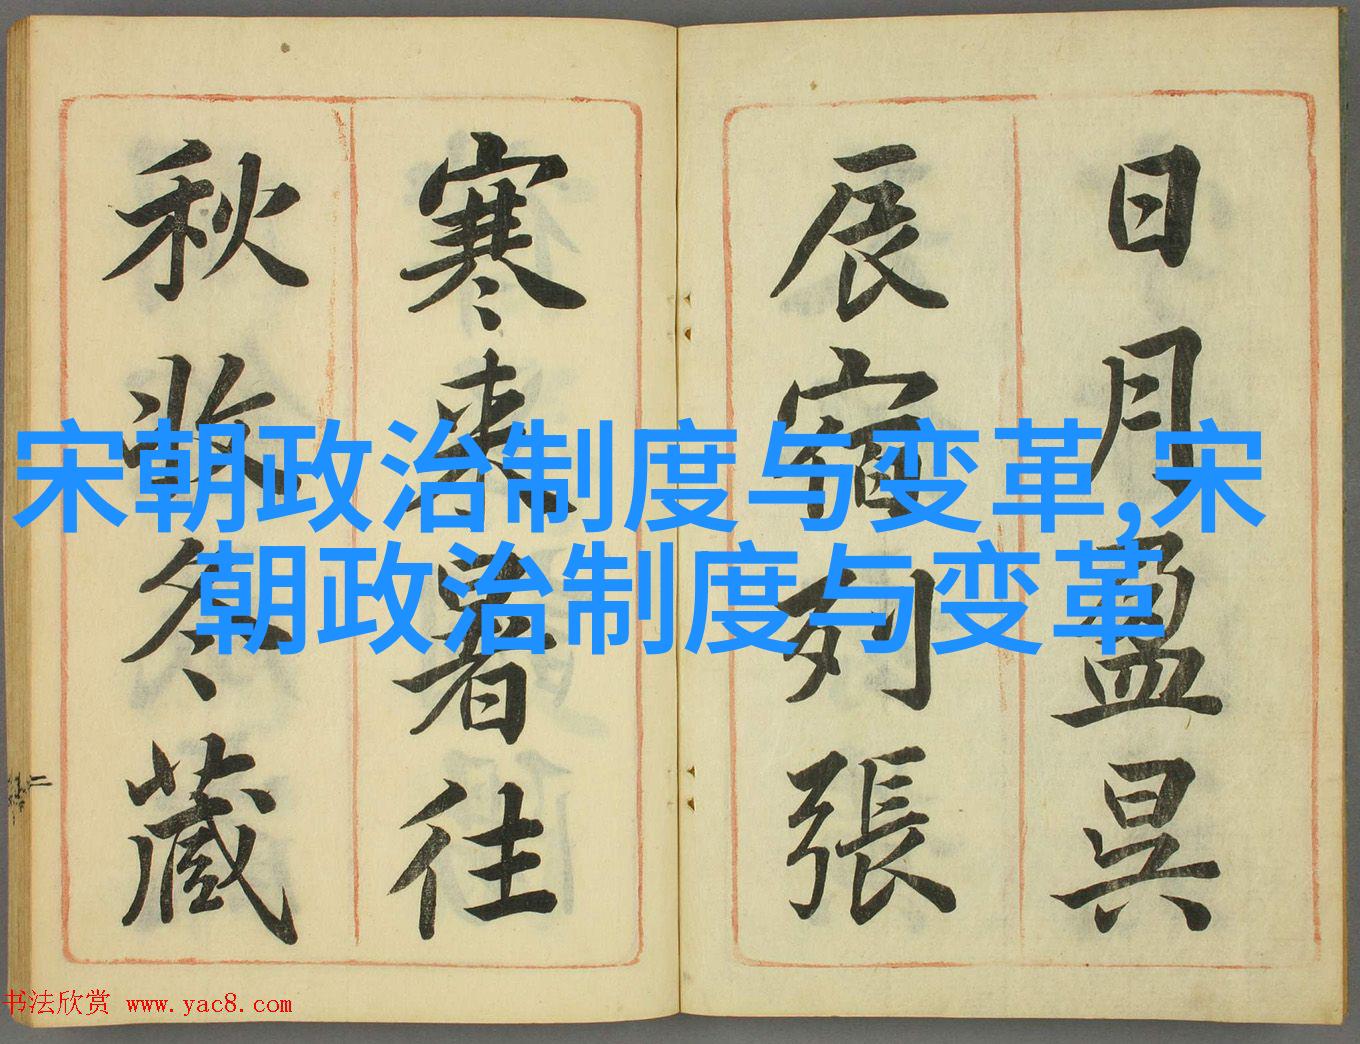 日月盈昃
辰宿列張
寒來暑往
秋收冬藏
宋朝政治制度与变革,宋
朝政治制度与变革
书法欣赏 www.yac8.com